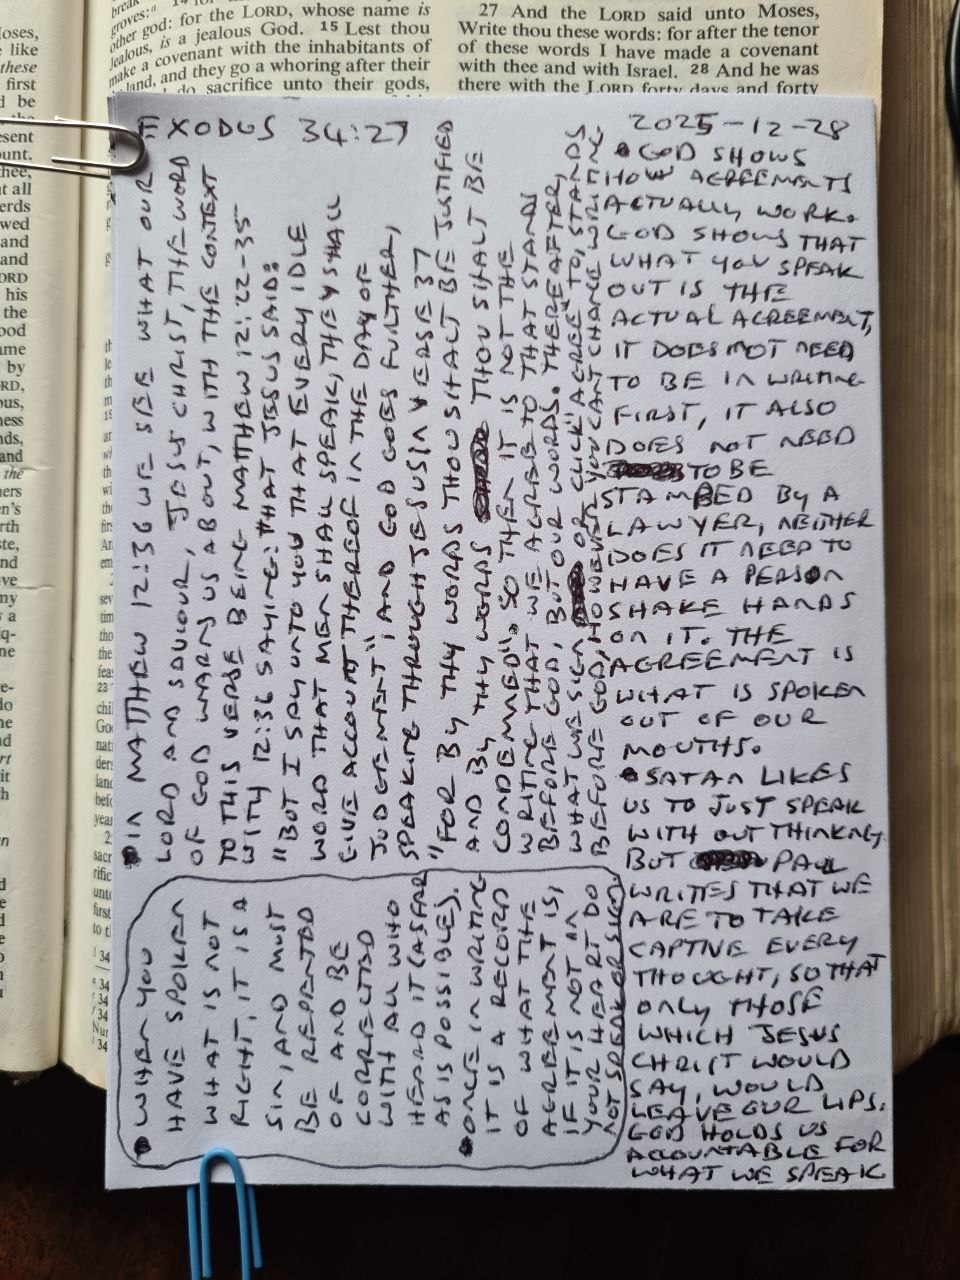 break
groves:
14
other god: for the LORD, whose name is
Jealous, is a jealous God. 15 Lest thou
make a covenant with the inhabitants of
land, and they go a whoring after their
do sacrifice unto their gods,
27 And the LORD said unto Moses,
Write thou these words: for after the tenor
of these words I have made a covenant
with thee and with Israel. 28 And he was
there with the LORD forty days and forty
EXODUS 34:27
2025-12-28
• GOD SHOWS
HOW AGREEMENTS
ACTUALLY WORK.
GOD SHOWS THAT
WHAT YOU SPEAK
OUT IS THE
ACTUAL AGREEMENT,
IT DOES NOT NEED
TO BE IN WRITING
FIRST, IT ALSO
DOES NOT NEED
TO BE
STAMPED BY A
LAWYER, NEITHER
DOES IT NEED TO
HAVE A PERSON
SHAKE HANDS
ON IT. THE
AGREEMENT IS
WHAT IS SPOKEN
OUT OF OUR
MOUTHS.
• SATAN LIKES
US TO JUST SPEAK
WITHOUT THINKING.
BUT PAUL
WRITES THAT WE
ARE TO TAKE
CAPTIVE EVERY
THOUGHT, SO THAT
ONLY THOSE
WHICH JESUS
CHRIST WOULD
SAY, WOULD
LEAVE OUR LIPS.
GOD HOLDS US
ACCOUNTABLE FOR
WHAT WE SPEAK.
• IN MATTHEW 12:36 WE SEE WHAT OUR
LORD AND SAVIOUR, JESUS CHRIST, THE WORD
OF GOD WARNS US ABOUT, WITH THE CONTEXT
TO THIS VERSE BEING MATTHEW 12:22-35
WITH 12:36 SAYING: THAT JESUS SAID:
"BUT I SAY UNTO YOU THAT EVERY IDLE
WORD THAT MEN SHALL SPEAK, THEY SHALL
GIVE ACCOUNT THEREOF IN THE DAY OF
JUDGEMENT"; AND GOD GOES FURTHER,
SPEAKING THROUGH JESUS IN VERSE 37
"FOR BY THY WORDS THOU SHALT BE JUSTIFIED
AND BY THY WORDS THOU SHALT BE
CONDEMNED". SO THEN IT IS NOT THE
WRITING THAT WE AGREE TO THAT STANDS
BEFORE GOD, BUT OUR WORDS. THEREAFTER,
WHAT WE SIGN OR CLICK "AGREE" TO, STANDS
BEFORE GOD, HOWEVER YOU CANT CHANGE WRITING
• WHEN YOU
HAVE SPOKEN
WHAT IS NOT
RIGHT, IT IS A
SIN, AND MUST
BE REPENTED
OF AND BE
CORRECTED
WITH ALL WHO
HEARD IT (AS FAR
AS IS POSSIBLE).
• ONCE IN WRITING
IT IS A RECORD
OF WHAT THE
AGREEMENT IS,
IF IT IS NOT IN
YOUR HEART DO
NOT SPEAK OR SIGN